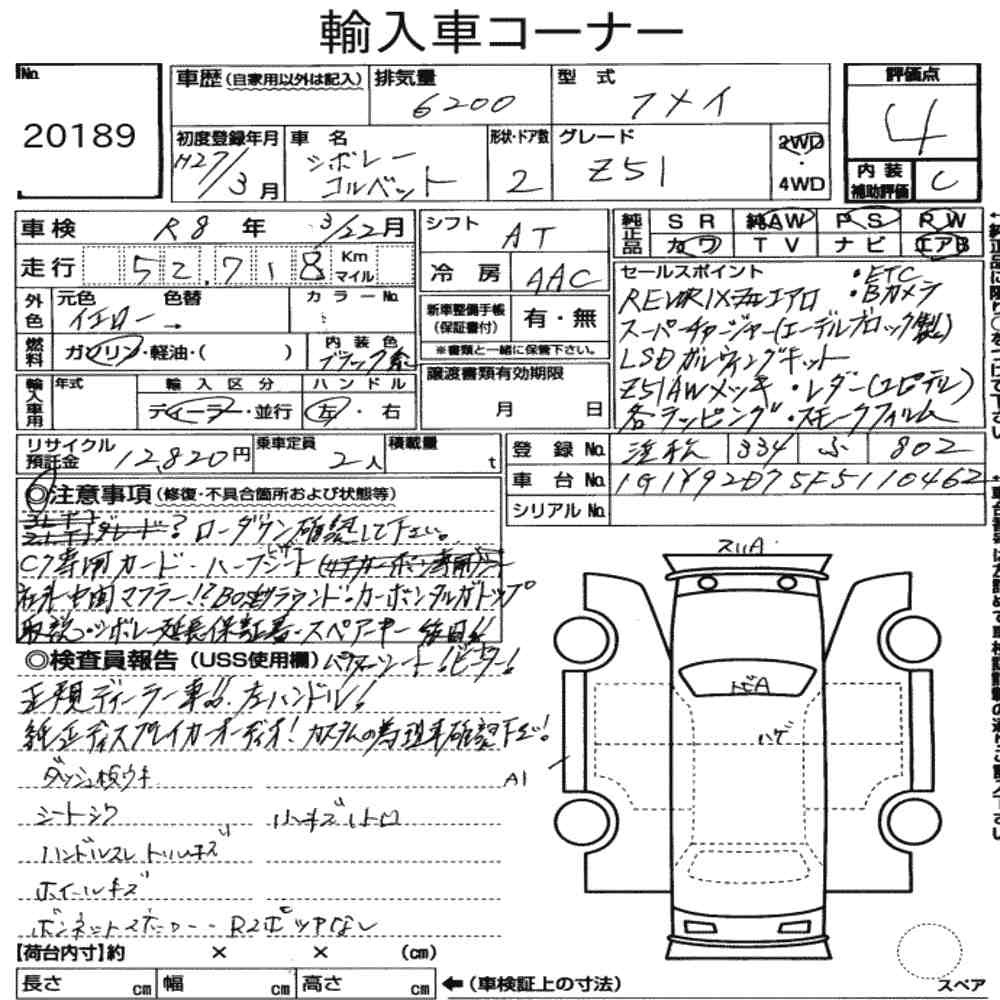 輸入車コーナー
No.
20189
車歴 (自家用以外は記入)
排気量
6200
型式
フメイ
評価点
4
初度登録年月
H27/3月
車名
シボレー
コルベット
形状・ドア数
2
グレード
Z51
2WD
・
4WD
内装
補助評価
C
車検 R8年 3/22月
走行 52,718 Km マイル
外色
元色 色替
イエロー →
カラーNo.
燃料
ガソリン・軽油・( )
内装色
ブラック系
輸入車用
年式
輸入区分
ディーラー・並行
ハンドル
左・右
シフト
AT
冷房
AAC
新車整備手帳
(保証書付)
有・無
※書類と一緒に保管下さい。
譲渡書類有効期限
月 日
純正品
SR 純AW PS PW
カワ TV ナビ エアB
セールスポイント ・ETC
エアロ ・Bカメラ
スーパーチャージャー(エーデルブロック製)
LSD ガルウィングキット
Z51AWメッキ ・レダー(ユピテル)
各ラッピング・スモークフィルム
リサイクル
預託金
12,820円
乗車定員
2人
積載量
t
登録No. 334 ふ 802
車台No. 1G1Y92D75F5110462
シリアルNo.
◎注意事項 (修復・不具合箇所および状態等)
グレード? ローダウン確認して下さい。
C7専用カード・ハーフシート
社外中間マフラー!? BOSEサラウンド・カーボンタルガトップ
取説・シボレー延長保証書・スペアーキー 後日!!
◎検査員報告 (USS使用欄) パワーシート!ヒーター!
正規ディーラー車!! 左ハンドル!
純正ディスプレイカーオーディオ! カスタムの為現車確認下さい!
ダッシュ板ウキ
シートシワ
小キズ
ハンドルスレ
ホイールキズ
スリA
トビA
ハゲ
A1
【荷台内寸】約 × × (cm)
長さ cm 幅 cm 高さ cm ←(車検証上の寸法)
スペア